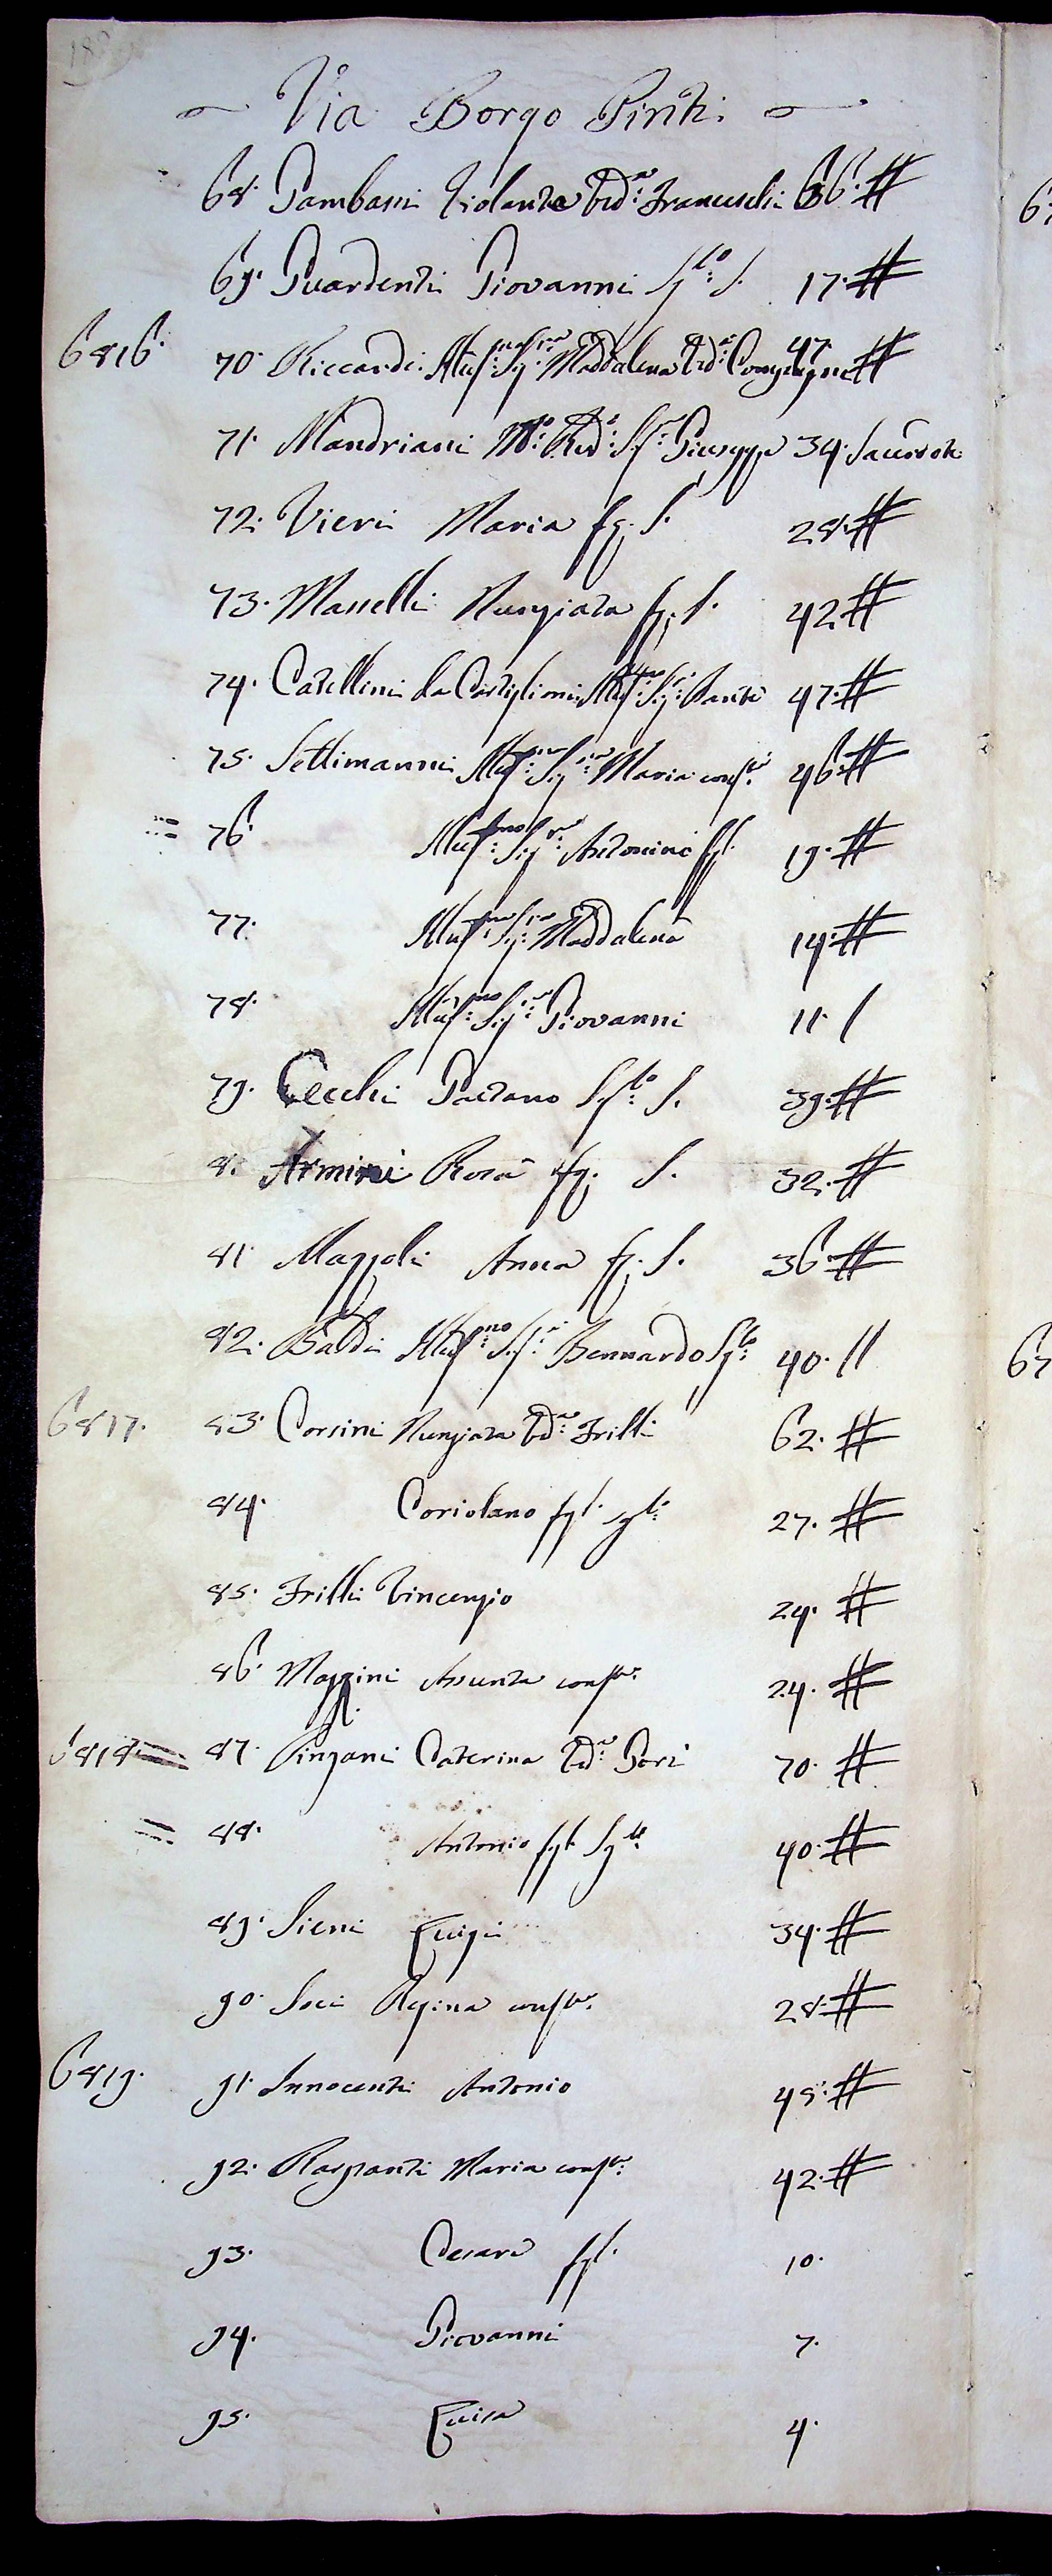 Via Borgo Pinti
68. Gambassi Violante Vd:a Franceschi 66. #
69. Guardenti Giovanni Sg:lo S. 17. #
6816. 70. Riccardi Illus:ma Sig:ra Maddalena Vd:a Compagni 47. #
71. Mandriani M:to Rev:do S:r Giuseppe 34. Sacerdote
72. Vieri Maria fg. S. 28. #
73. Masselli Nunziata fg. S. 42. #
74. Catellini da Castiglioni Illus:mo Sig:r Dante 47. #
75. Settimanni Illus:ma Sig:ra Maria cons:te 46. #
76. Illus:mo Sig:r Antonino fgl. 19. #
77. Illus:ma Sig:ra Maddalena 14. #
78. Illus:mo Sig:re Giovanni 11. /
79. Cecchi Gaetano Sg:lo S. 39. #
8. Armini Rosa fg. S. 32. #
81. Mazzoli Anna fg. S. 36. #
82. Baldi Illus:mo Sig:r Bernardo Sg:lo 40. //
6817. 83. Corsini Nunziata Vd:a Frilli 62. #
84. Coriolano fgl. sg:lo 27. #
85. Frilli Vincenzio 24. #
86. Mazzini Assunta cons:te 24. #
6818. 87. Pinzani Caterina Vd:a Gori 70. #
88. Antonio fgl. Sg:lo 40. #
89. Sieni Luigi 34. #
90. Soci Regina cons:te 28. #
6819. 91. Innocenti Antonio 45. #
92. Raspanti Maria cons:te 42. #
93. Cesare fgl. 10.
94. Giovanni 7.
95. Luisa 4.